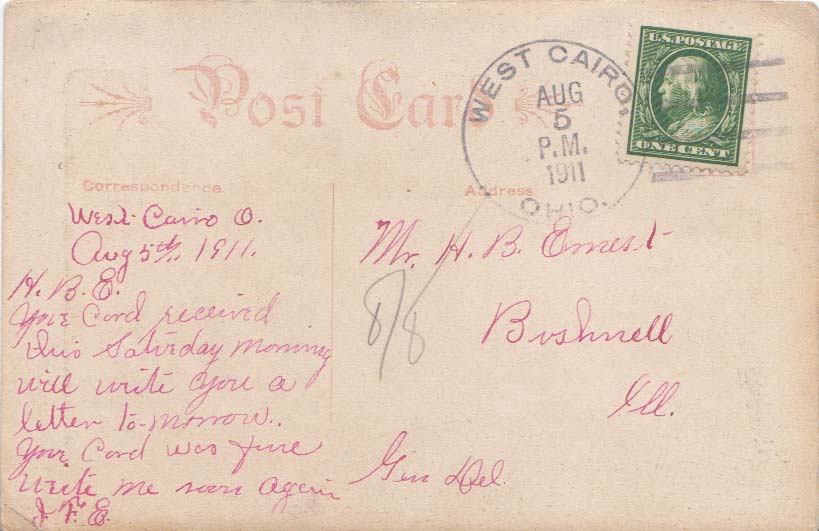 Post Card
WEST CAIRO,
AUG
5
P.M.
1911
OHIO.
U.S. POSTAGE
ONE CENT
Correspondence
Address
West Cairo O.
Aug 5th, 1911.
H. B. E.
Your Card received
this Saturday morning
will write you a
letter to-morrow..
Your Card was fine
write me soon again
J. F. E.
Mr. H. B. Ernest
Bushnell
Ill.
Gen Del.
8/8